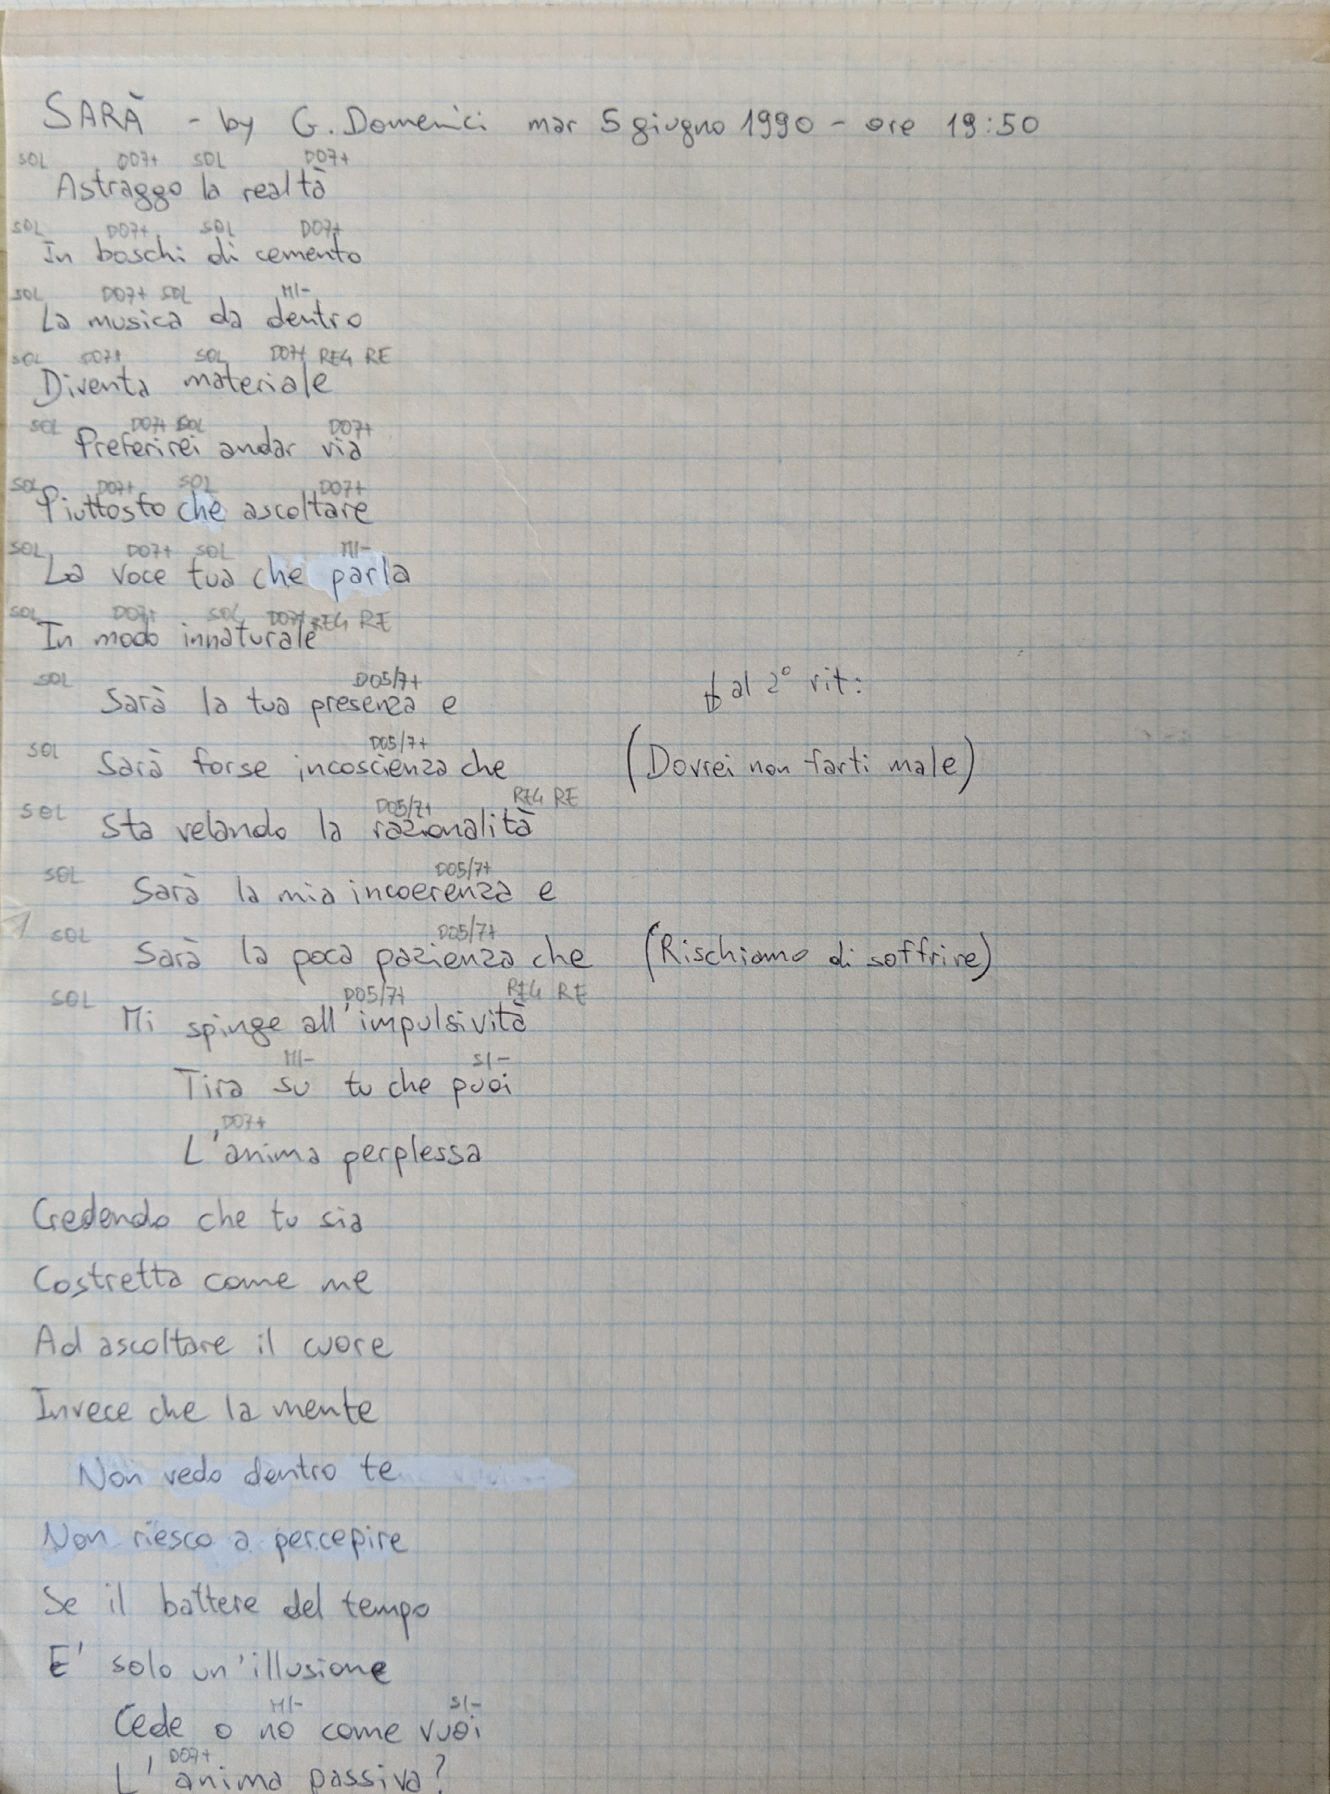 SARÀ - by G. Domenici mar 5 giugno 1990 - ore 19:50
SOL DO7+ SOL DO7+
Astraggo la realtà
SOL DO7+ SOL DO7+
In boschi di cemento
SOL DO7+ SOL MI-
La musica da dentro
SOL DO7+ SOL DO7+ RE4 RE
Diventa materiale
SOL DO7+ SOL DO7+
Preferirei andar via
SOL DO7+ SOL DO7+
Piuttosto che ascoltare
SOL DO7+ SOL MI-
La voce tua che parla
SOL DO7+ SOL DO7+ RE4 RE
In modo innaturale
SOL DO5/7+
Sarà la tua presenza e
al 2° rit:
SOL DO5/7+
Sarà forse incoscienza che (Dovrei non farti male)
SOL DO5/7+ RE4 RE
Sta velando la razionalità
SOL DO5/7+
Sarà la mia incoerenza e
SOL DO5/7+
Sarà la poca pazienza che (Rischiamo di soffrire)
SOL DO5/7+ RE4 RE
Mi spinge all'impulsività
MI- SI-
Tira su tu che puoi
DO7+
L'anima perplessa
Credendo che tu sia
Costretta come me
Ad ascoltare il cuore
Invece che la mente
Non vedo dentro te
Non riesco a percepire
Se il battere del tempo
E' solo un'illusione
MI- SI-
Cede o no come vuoi
DO7+
L'anima passiva?